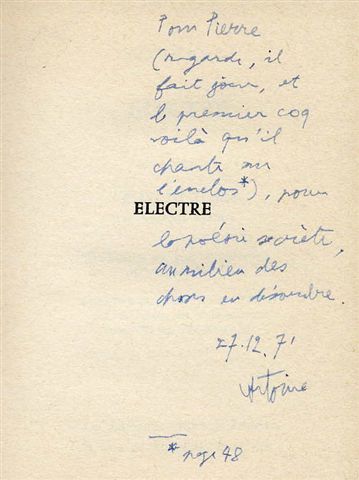 Pour Pierre
(regarde, il
fait jour, et
le premier coq
voilà qu'il
chante sur
l'enclos*), pour
ELECTRE
la poésie secrète,
au milieu des
choses en désordre.
27.12.71
Antoine
* page 48